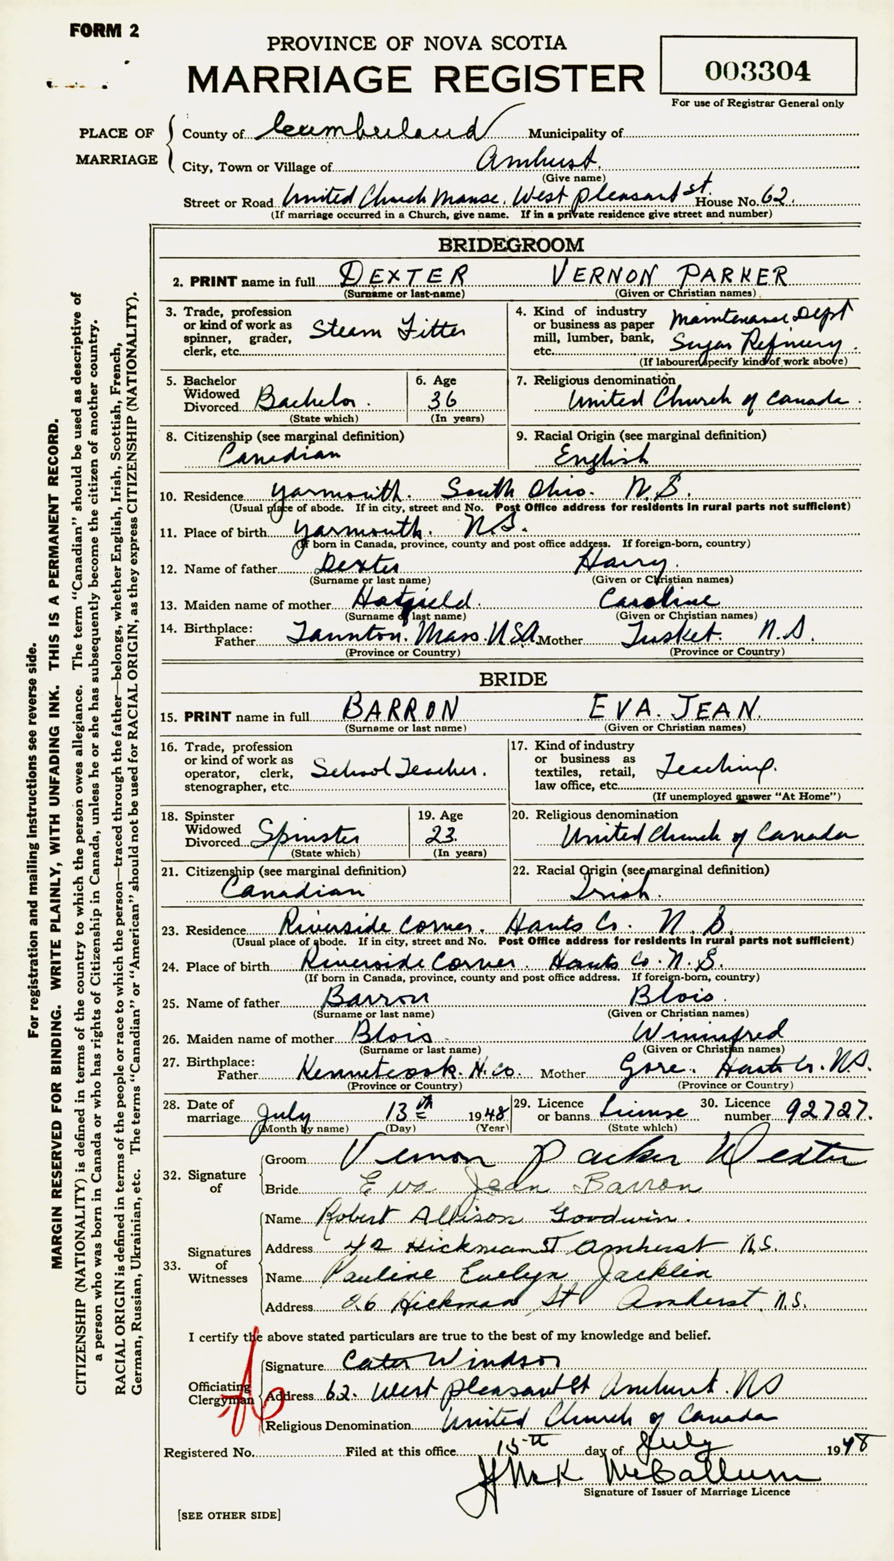 FORM 2
PROVINCE OF NOVA SCOTIA
MARRIAGE REGISTER
003304
For use of Registrar General only
PLACE OF MARRIAGE
County of Cumberland Municipality of
City, Town or Village of Amhurst.
(Give name)
Street or Road United Church Manse. West Pleasant St. House No. 62.
(If marriage occurred in a Church, give name. If in a private residence give street and number)
BRIDEGROOM
2. PRINT name in full DEXTER VERNON PARKER
(Surname or last-name) (Given or Christian names)
3. Trade, profession or kind of work as spinner, grader, clerk, etc. Steam Fitter
4. Kind of industry or business as paper mill, lumber, bank, etc. Maintenance Dept Sugar Refinery.
(If labourer specify kind of work above)
5. Bachelor Widowed Divorced Bachelor.
(State which)
6. Age 36
(In years)
7. Religious denomination United Church of Canada.
8. Citizenship (see marginal definition) Canadian
9. Racial Origin (see marginal definition) English
10. Residence Yarmouth. South Ohio. N.S.
(Usual place of abode. If in city, street and No. Post Office address for residents in rural parts not sufficient)
11. Place of birth Yarmouth. N.S.
(If born in Canada, province, county and post office address. If foreign-born, country)
12. Name of father Dexter Harry.
(Surname or last name) (Given or Christian names)
13. Maiden name of mother Hatfield. Caroline
(Surname or last name) (Given or Christian names)
14. Birthplace: Father Taunton. Mass. USA. Mother Tusket. N.S.
(Province or Country) (Province or Country)
BRIDE
15. PRINT name in full BARRON EVA. JEAN.
(Surname or last name) (Given or Christian names)
16. Trade, profession or kind of work as operator, clerk, stenographer, etc. School Teacher.
17. Kind of industry or business as textiles, retail, law office, etc. Teaching.
(If unemployed answer "At Home")
18. Spinster Widowed Divorced Spinster
(State which)
19. Age 23.
(In years)
20. Religious denomination United Church of Canada
21. Citizenship (see marginal definition) Canadian
22. Racial Origin (see marginal definition) Irish.
23. Residence Riverside Corner. Hants Co. N.S.
(Usual place of abode. If in city, street and No. Post Office address for residents in rural parts not sufficient)
24. Place of birth Riverside Corner. Hants Co. N.S.
(If born in Canada, province, county and post office address. If foreign-born, country)
25. Name of father Barron Blois.
(Surname or last name) (Given or Christian names)
26. Maiden name of mother Blois. Winnifred
(Surname or last name) (Given or Christian names)
27. Birthplace: Father Kennetcook. H. Co. Mother Gore. Hants Co. N.S.
(Province or Country) (Province or Country)
28. Date of marriage July 13th 1948
(Month by name) (Day) (Year)
29. Licence or banns License
(State which)
30. Licence number 92727.
32. Signature of
Groom Vernon Parker Dexter
Bride Eva Jean Barron
33. Signatures of Witnesses
Name Robert Allison Goodwin.
Address 42 Hickman St Amherst N.S.
Name Pauline Evelyn Jacklin
Address 26 Hickman St Amherst, N.S.
I certify the above stated particulars are true to the best of my knowledge and belief.
Officiating Clergyman
Signature Cater Windsor
Address 62. West Pleasant St Amhurst. NS
Religious Denomination United Church of Canada
Registered No. Filed at this office 15th day of July 1948
McCallum
Signature of Issuer of Marriage Licence
[SEE OTHER SIDE]
For registration and mailing instructions see reverse side.
MARGIN RESERVED FOR BINDING. WRITE PLAINLY, WITH UNFADING INK. THIS IS A PERMANENT RECORD.
CITIZENSHIP (NATIONALITY) is defined in terms of the country to which the person owes allegiance. The term "Canadian" should be used as descriptive of
a person who was born in Canada or who has rights of Citizenship in Canada, unless he or she has subsequently become the citizen of another country.
RACIAL ORIGIN is defined in terms of the people or race to which the person—traced through the father—belongs, whether English, Irish, Scottish, French,
German, Russian, Ukrainian, etc. The terms "Canadian" or "American" should not be used for RACIAL ORIGIN, as they express CITIZENSHIP (NATIONALITY).